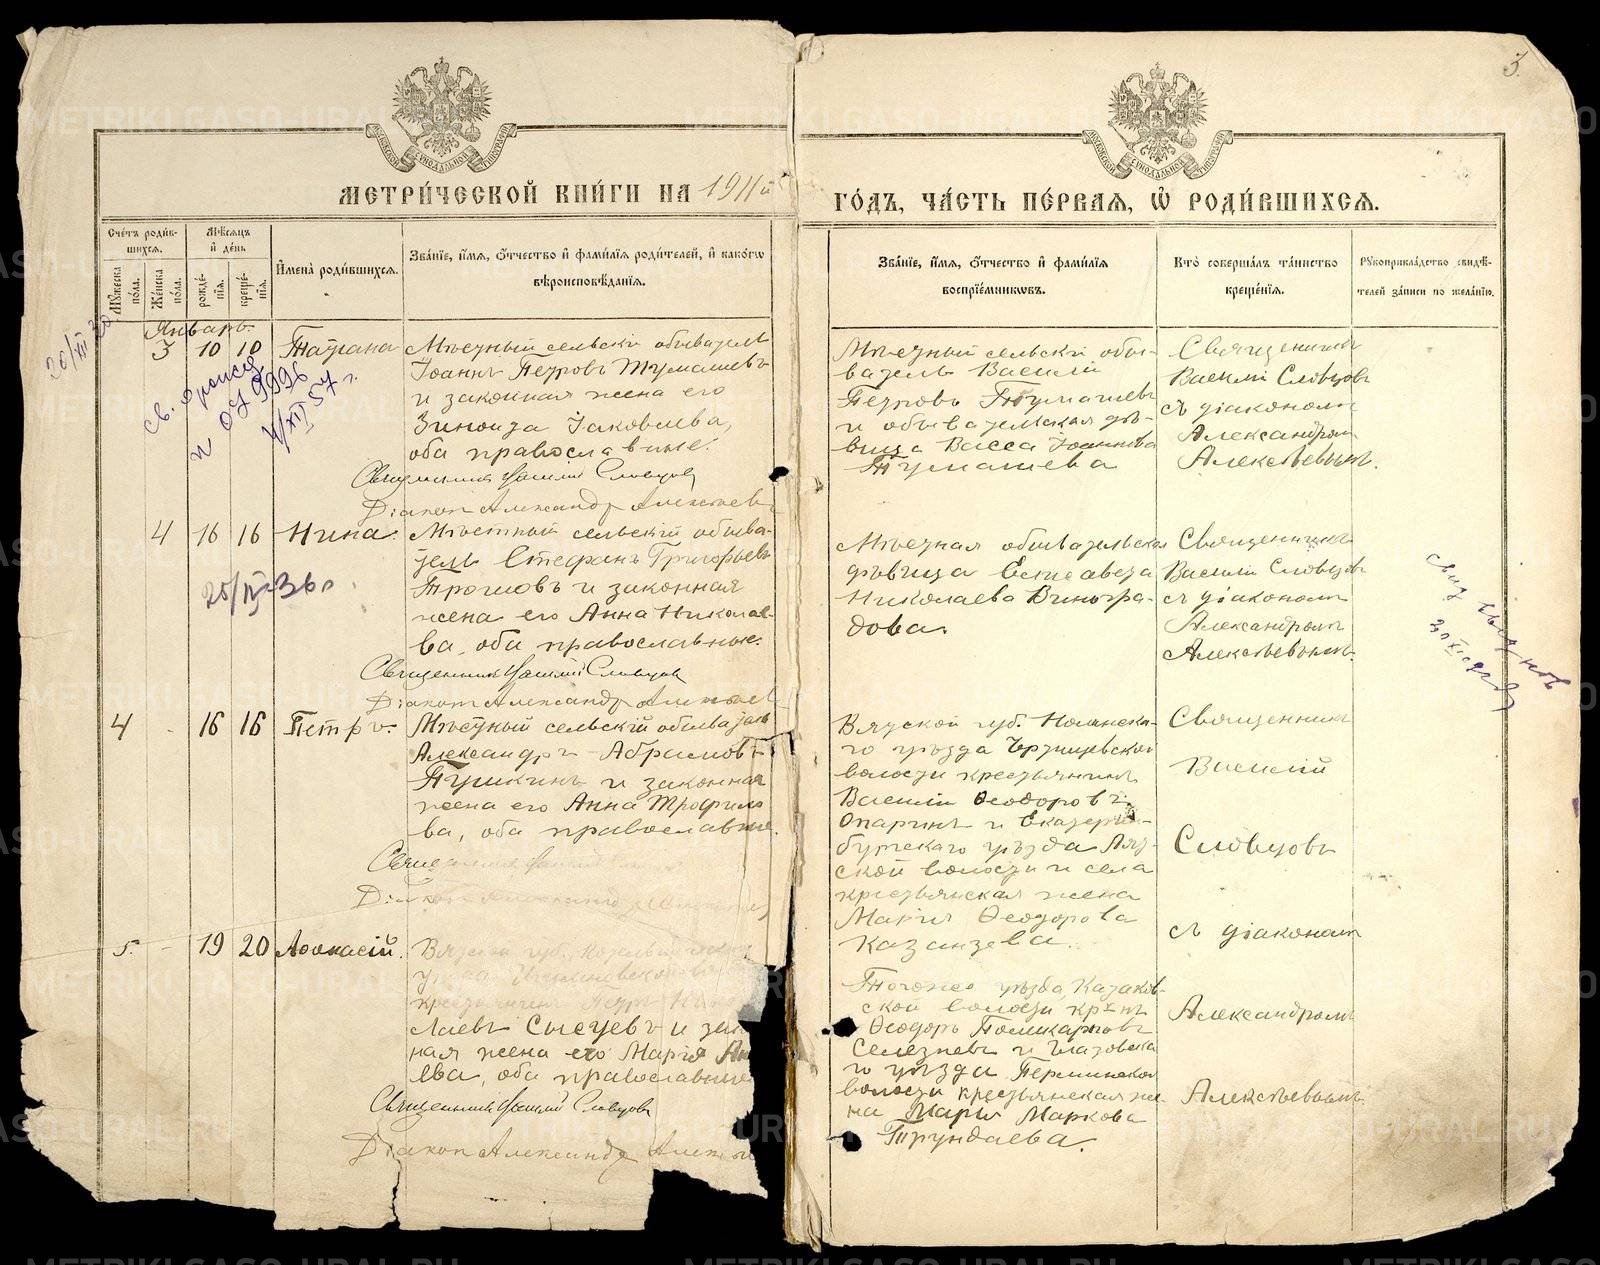 3.
МОСКОВСКОЙ СѴНОДАЛЬНОЙ ТИПОГРАФІИ
МОСКОВСКОЙ СѴНОДАЛЬНОЙ ТИПОГРАФІИ
МЕТРИ́ЧЕСКОЙ КНИ́ГИ НА 1911й
ГО́ДЪ, ЧА́СТЬ ПЕ́РВАѦ, Ѡ҆ РОДИ́ВШИХСѦ.
Сче́тъ роди́в-
шихсѧ.
Мꙋ́жеска по́ла.
Же́нска по́ла.
Мѣ́сѧцъ
и҆ де́нь
рожде́-
нїѧ.
креще́-
нїѧ.
И҆мена̀ роди́вшихсѧ.
Зва́нїе, и҆́мѧ, ѻ҆́тчество и҆ фами́лїѧ роди́телей, и҆ како́гѡ
вѣроисповѣ́данїѧ.
Зва́нїе, и҆́мѧ, ѻ҆́тчество и҆ фами́лїѧ
воспрїе́мниковъ.
Кто̀ соверша́лъ та́инство
креще́нїѧ.
Рꙋкоприкла́дство свидѣ́-
телей за́писи по жела́нїю.
Январь.
3 10 10 Татіана
Мѣстный сельскій обыватель
Іоаннъ Петровъ Тумашевъ
и законная жена его
Зиноида Іаковлева,
оба православные.
Священникъ Василій Словцовъ
Діаконъ Александръ Алексѣевъ
Мѣстный сельскій обы-
ватель Василій
Петровъ Тумашевъ
и обывательская дѣ-
вица Васса Іоаннова
Тумашева
Священникъ
Василій Словцовъ
съ діакономъ
Александромъ
Алексѣевымъ.
20/III 20
4 16 16 Нина.
Мѣстный сельскій обыва-
тель Стефанъ Григорьевъ
и законная
жена его Анна Николае-
ва, оба православные.
Священникъ Василій Словцовъ
Діаконъ Александръ Алексѣевъ
20/IV 36 г.
Мѣстная обывательская
дѣвица Елисавета
Николаева Виногра-
дова.
Священникъ
Василій Словцовъ
съ діакономъ
Александромъ
Алексѣевымъ.
4 16 16 Петръ.
Мѣстный сельскій обыватель
Александръ Абрамовъ
Пушкинъ и законная
жена его Анна Трофимо
ва, оба православные.
Священникъ Василій
Діаконъ Александръ
Вятской губ. Нолинска-
го уѣзда
волости крестьянинъ
Василій Ѳеодоровъ
Опаринъ и Екатерин-
бургскаго уѣзда Аят-
ской волости и села
крестьянская жена
Марія Ѳеодорова
Казанцева.
Священникъ
Василій
Словцовъ
съ діакономъ
Александромъ
Алексѣевымъ.
5. 19 20 Аѳанасій.
Вятской губ.
уѣзда
крестьянинъ Петръ Нико
лаевъ Сысуевъ и закон
ная жена его Марія
ева, оба православные
Священникъ Василій Словцовъ
Діаконъ Александръ Алексѣ
Тогоже уѣзда, Казаков-
ской волости кр-нъ
Ѳеодоръ Поликарповъ
Селезневъ и Глазовска
го уѣзда
волости крестьянская же-
на Марія Маркова
Трундаева.